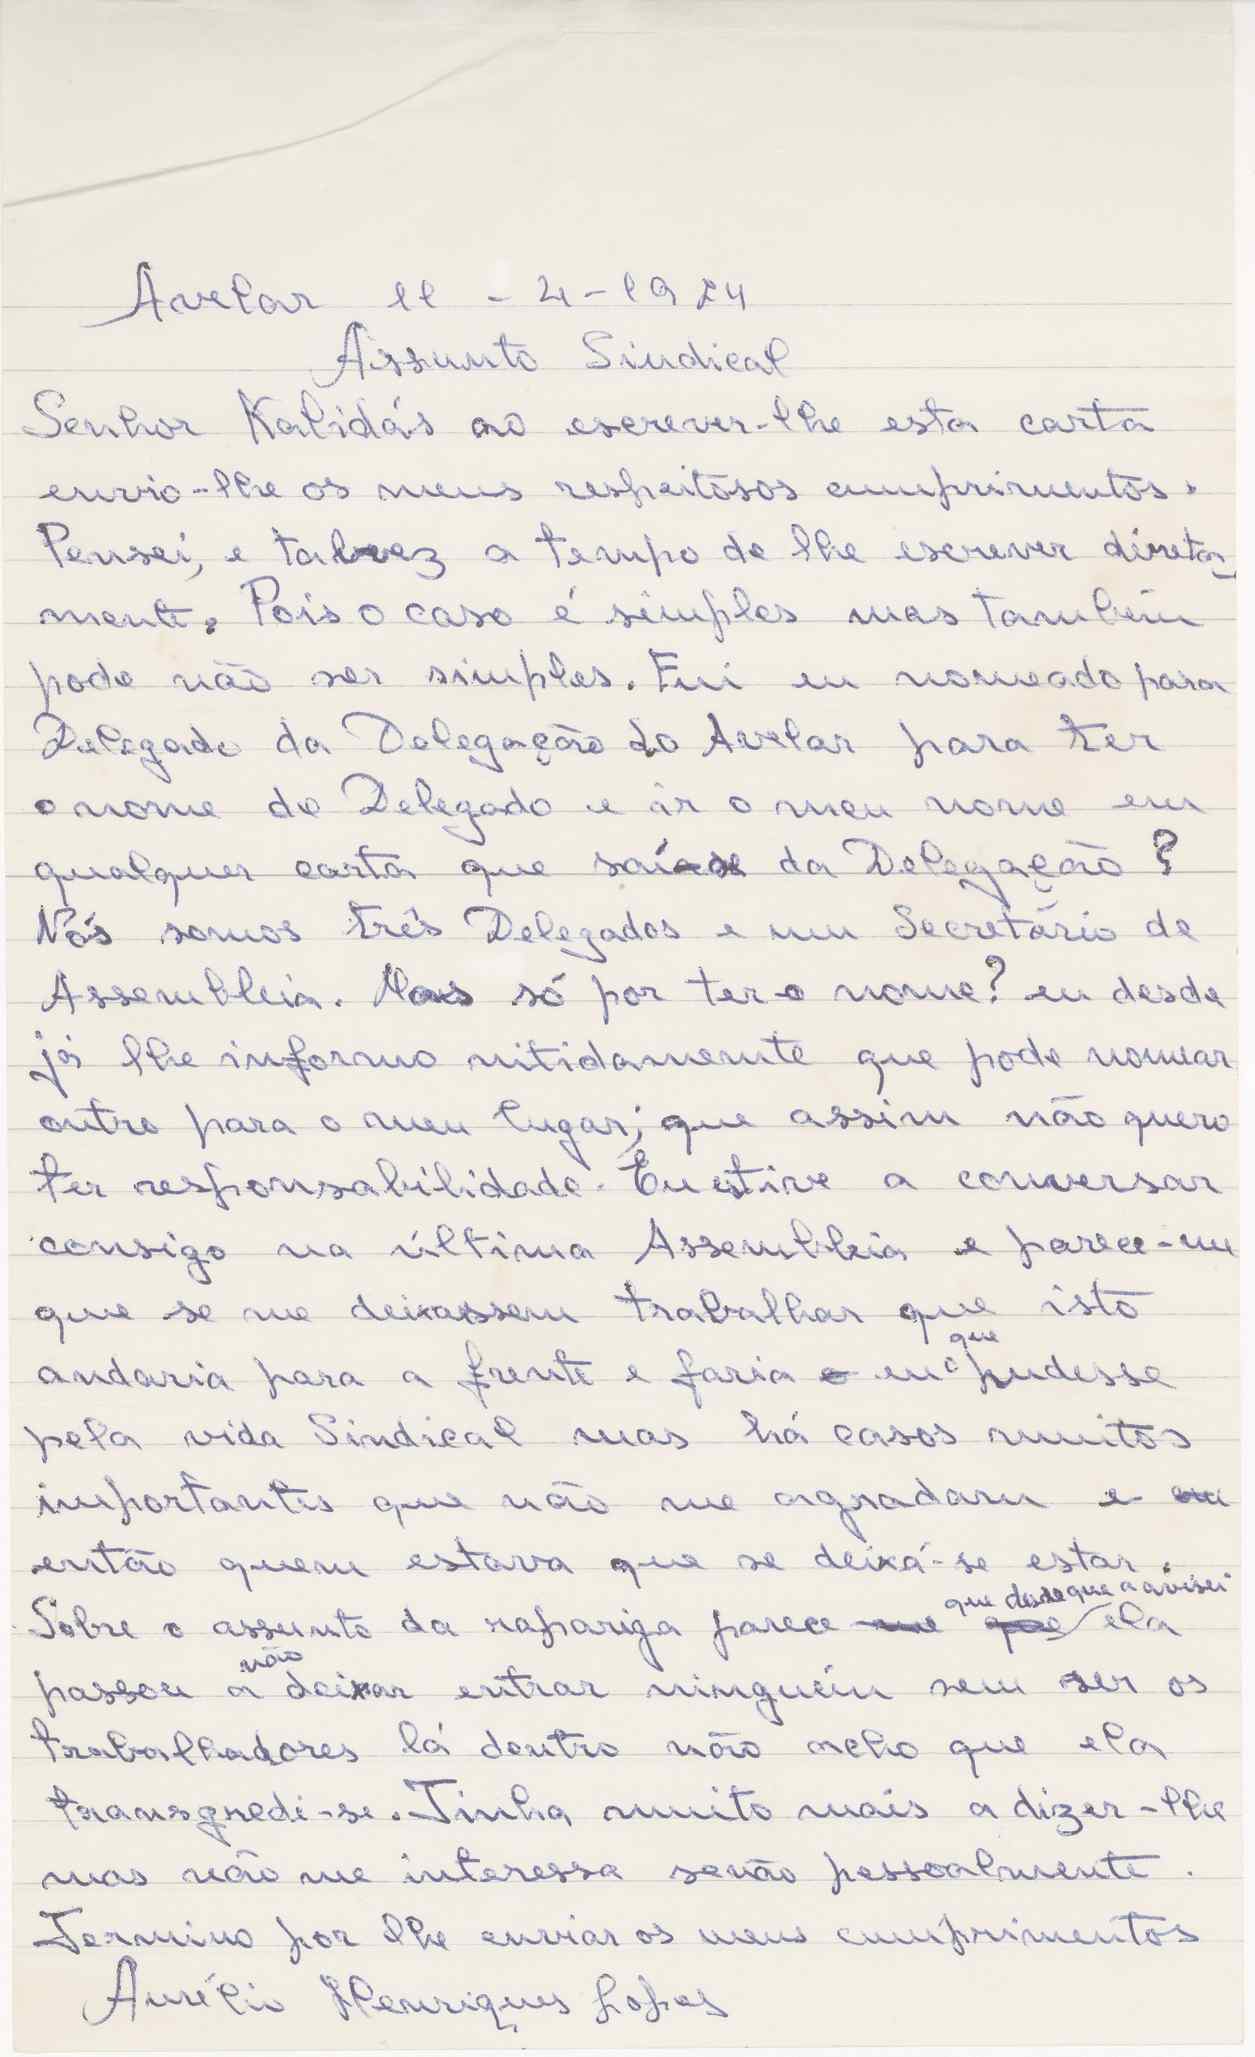 Avelar 11 - 4 - 1974
Assunto Sindical
Senhor Kalidás ao escrever-lhe esta carta
envio-lhe os meus respeitosos cumprimentos.
Pensei, e talvez a tempo de lhe escrever direta-
mente. Pois o caso é simples mas também
pode não ser simples. Fui eu nomeado para
Delegado da Delegação do Avelar para ter
o nome de Delegado e ir o meu nome em
qualquer carta que saísse da Delegação?
Nós somos três Delegados e um Secretário de
Assembleia. Mas só por ter o nome? eu desde
já lhe informo nitidamente que pode nomear
outro para o meu lugar; que assim não quero
ter responsabilidade. Eu estive a conversar
consigo na última Assembleia e parece-me
que se me deixassem trabalhar que isto
andaria para a frente e faria eu o que pudesse
pela vida Sindical mas há casos muitos
importantes que não me agradam e
então quem estava que se deixá-se estar.
Sobre o assunto da rapariga parece que desde que a avisei ela
passou a não deixar entrar ninguém sem ser os
trabalhadores lá dentro não acho que ela
transgredi-se. Tinha muito mais a dizer-lhe
mas não me interessa senão pessoalmente.
Termino por lhe enviar os meus cumprimentos
Aurélio Henriques Lopes